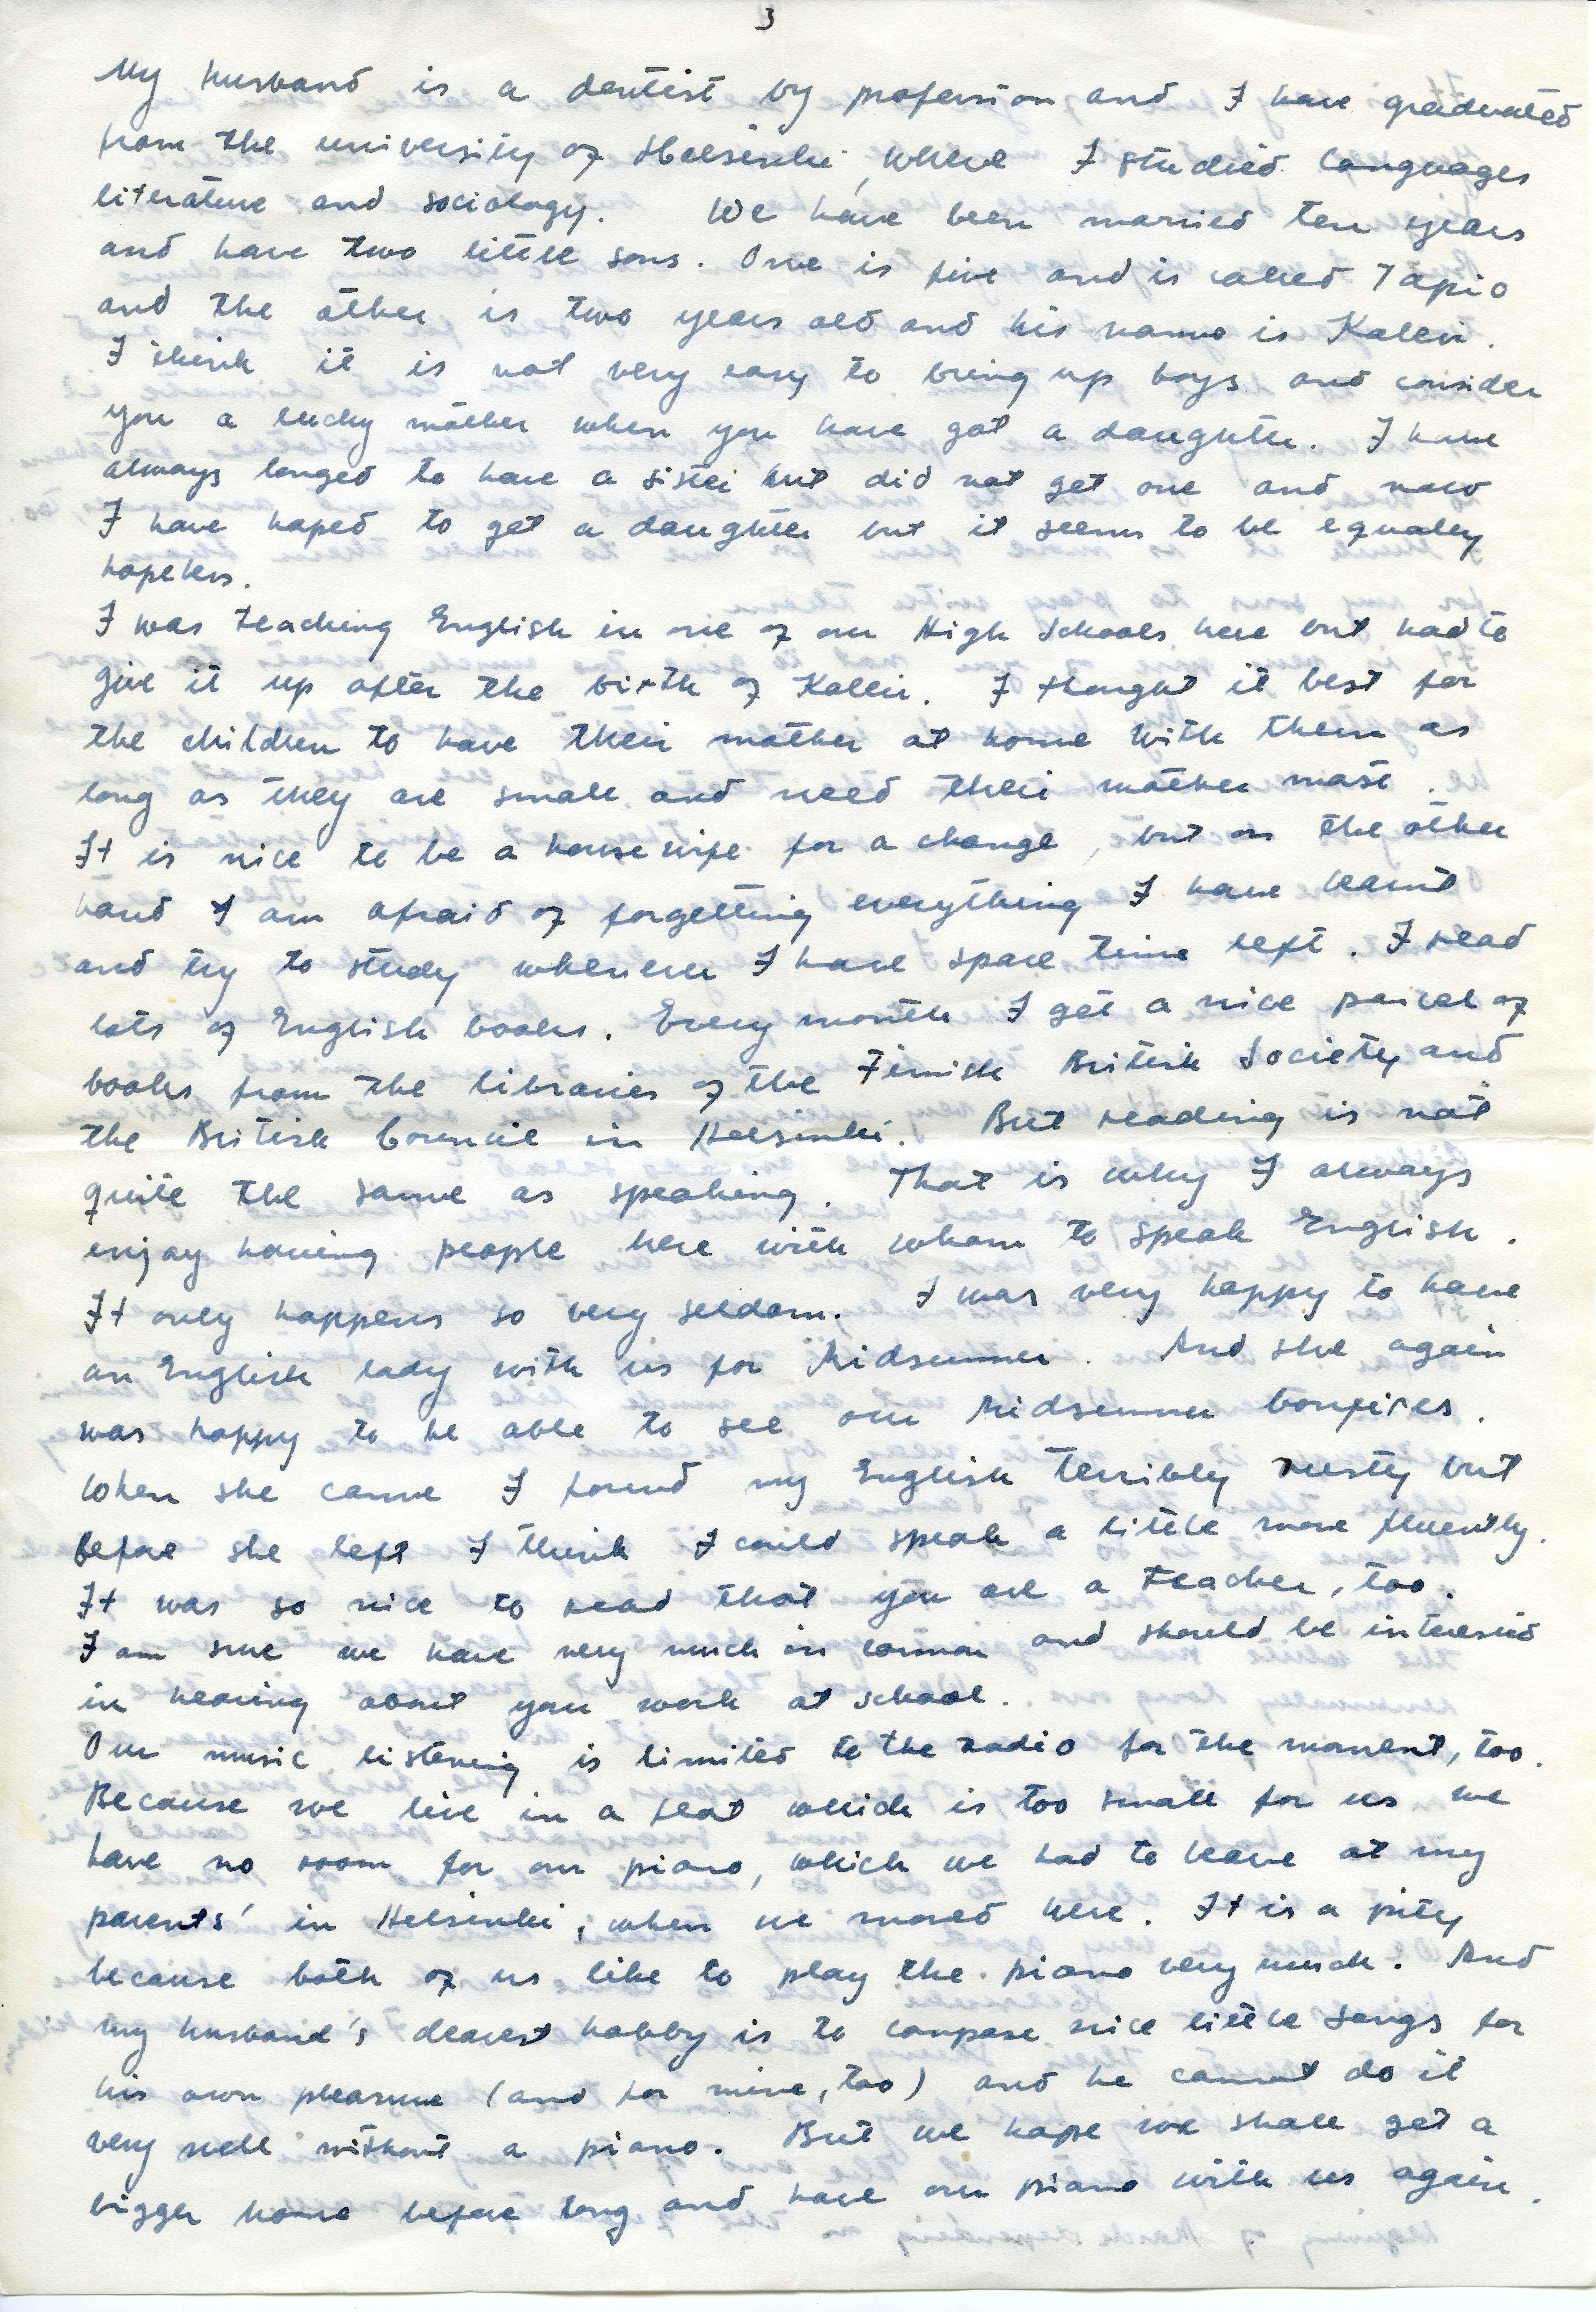 3
My husband is a dentist by profession and I have graduated
from the university of Helsinki, where I studied languages
literature and sociology. We have been married ten years
and have two little sons. One is five and is called Tapio
and the other is two years old and his name is Kallei.
I think it is not very easy to bring up boys and consider
you a lucky mother when you have got a daughter. I have
always longed to have a sister but did not get one and now
I have hoped to get a daughter but it seems to be equally
hopeless.
I was teaching English in one of our High Schools here but had to
give it up after the birth of Kallei. I thought it best for
the children to have their mother at home with them as
long as they are small and need their mother most.
It is nice to be a housewife for a change, but on the other
hand I am afraid of forgetting everything I have learnt
and try to study whenever I have spare time left. I read
lots of English books. Every month I get a nice parcel of
books from the libraries of the Finnish British Society and
the British Council in Helsinki. But reading is not
quite the same as speaking. That is why I always
enjoy having people here with whom to speak English.
It only happens so very seldom. I was very happy to have
an English lady with us for Midsummer. And she again
was happy to be able to see our Midsummer bonfires.
When she came I found my English terribly rusty but
before she left I think I could speak a little more fluently.
It was so nice to read that you are a teacher, too.
I am sure we have very much in common and should be interested
in hearing about your work at school.
Our music listening is limited to the radio for the moment, too.
Because we live in a flat which is too small for us we
have no room for our piano, which we had to leave at my
parents' in Helsinki, when we moved here. It is a pity
because both of us like to play the piano very much. And
my husband's dearest hobby is to compose nice little songs for
his own pleasure (and for mine, too) and he cannot do it
very well without a piano. But we hope we shall get a
bigger home before long and have our piano with us again.